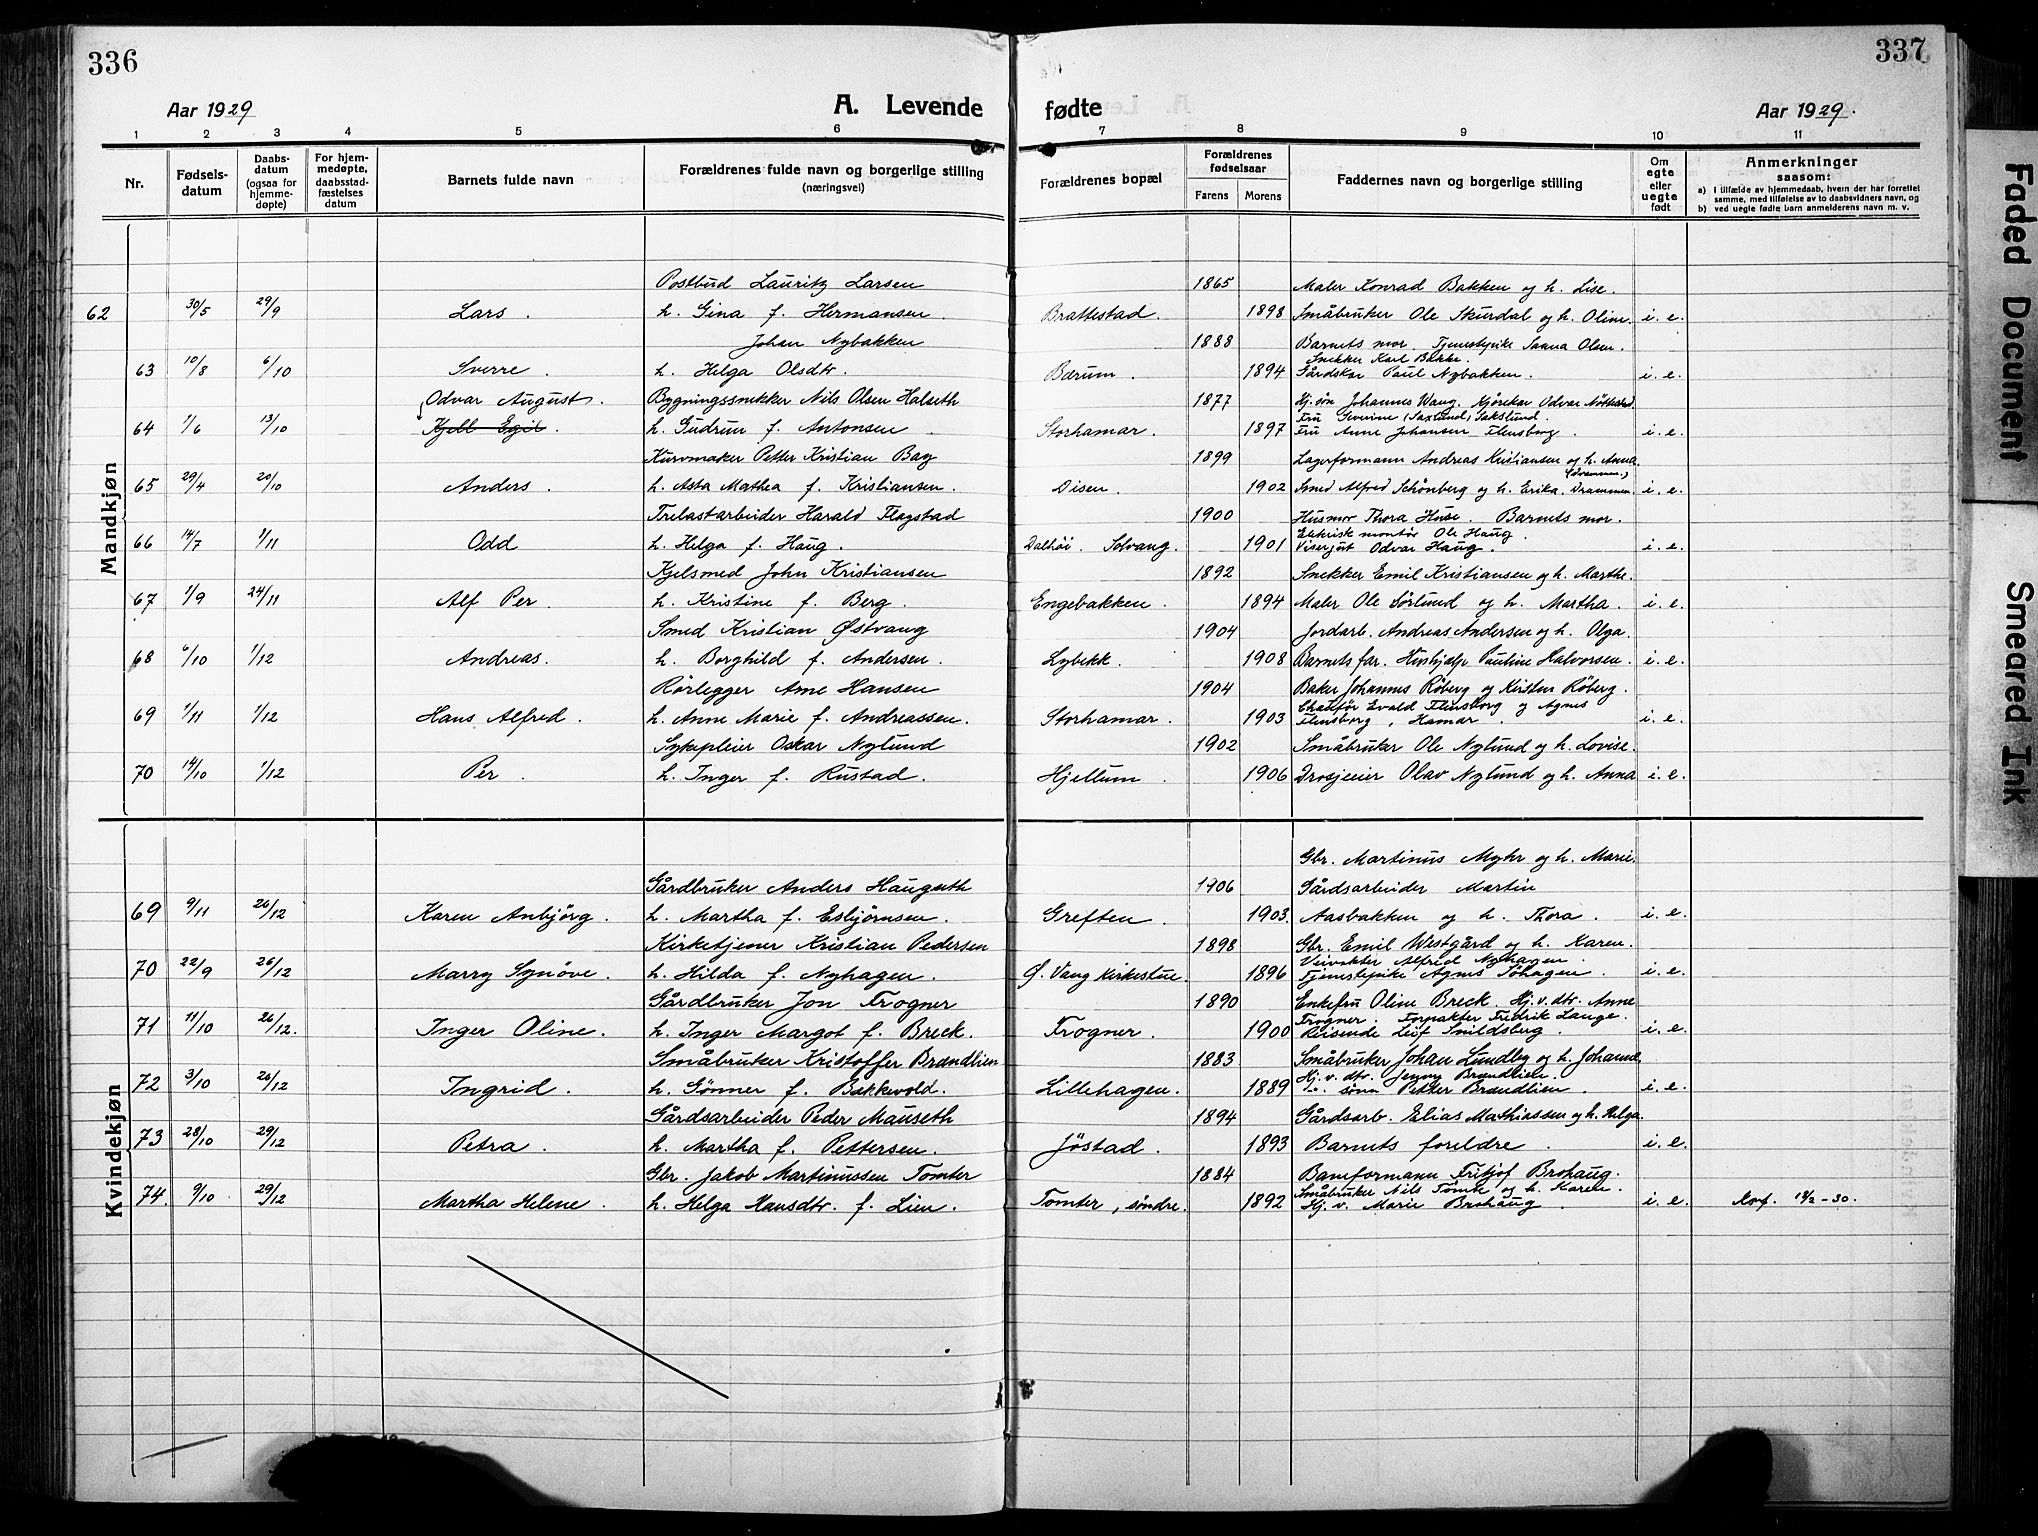 336
337
Aar 1929
A. Levende
fødte
Aar 1929.
1 2 3 4 5 6 7 8 9 10 11
Nr.
Fødsels-
datum
Daabs-
datum
(ogsaa for
hjemme-
døpte)
For hjem-
medøpte,
daabsstad-
fæstelses
datum
Barnets fulde navn
Forældrenes fulde navn og borgerlige stilling
(næringsvei)
Forældrenes bopæl
Forældrenes
fødselsaar
Farens Morens
Faddernes navn og borgerlige stilling
Om
egte
eller
uegte
født
Anmerkninger
saasom:
a) I tilfælde av hjemmedaab, hvem der har forrettet
samme, med tilføielse av to daabsvidners navn, og
b) ved uegte fødte barn anmelderens navn m. v.
Mandkjøn
Postbud Lauritz Larsen 1865 Maler Konrad Bakken og h. Lise.
62 30/5 29/9 Lars. h. Gina f. Hermansen. Brattestad. 1898 Småbruker Ole Skurdal og h. Oline. i. e.
Johan Nybakken 1888 Barnets mor. Tjenestpike Saana Olsen.
Snekker Karl Bakke.
63 10/8 6/10 Sverre. h. Helga Olsdtr. Bærum. 1894 Gårdskar Paul Nybakken. i. e.
Odvar August. Bygningssnekker Nils Olsen Halseth 1877 Hj. søn Johannes Wang. Kjørekar Odvar Nøttestad
Fru Severine (Saxlund) Sakslund.
64 1/6 13/10 Kjell Egil. h. Gudrun f. Antonsen. Storhamar. 1897 Fru Anne Johansen Flensborg. i. e.
Kurvmaker Petter Kristian Bay 1899 Lagerformann Andreas Kristiansen og h. Anna.
(Drammen)
65 29/4 20/10 Anders. h. Asta Mathea f. Kristiansen. Disen. 1902 Smed Alfred Schønberg og h. Erika. Drammen. i. e.
Trelastarbeider Harald Flagstad 1900 Husmor Thora Huse. Barnets mor.
Elektrisk montør Ole Haug.
66 14/7 1/11 Odd h. Helga f. Haug. Dalhøi. Solvang. 1901 Visergut Odvar Haug. i. e.
Kjelsmed John Kristiansen 1892 Snekker Emil Kristiansen og h. Marthe.
67 1/9 24/11 Alf Per. h. Kristine f. Berg. Engebakken. 1894 Maler Ole Sørlund og h. Martha. i. e.
Smed Kristian Østvang 1904 Jordarb. Andreas Andersen og h. Olga.
68 6/10 1/12 Andreas. h. Borghild f. Andersen. Lybekk. 1908 Barnets far. Hushjælp Pauline Halvorsen. i. e.
Rørlegger Arne Hansen 1904 Baker Johannes Røberg og Kirsten Røberg.
Chauffør Evald Flensborg og Agnes
69 1/11 1/12 Hans Alfred. h. Anne Marie f. Andreassen. Storhamar. 1903 Flensborg, Hamar. i. e.
Sykepleier Oskar Nylund 1902 Småbruker Ole Nylund og h. Lovise.
70 14/10 1/12 Per. h. Inger f. Rustad. Hjellum. 1906 Drosjeeier Olav Nylund og h. Anna i. e.
Kvindekjøn
Gbr. Martinus Myhr og h. Marie.
Gårdbruker Anders Haugseth 1906 Gårdsarbeider Martin
69 9/11 26/12 Karen Anbjørg. h. Martha f. Esbjørnsen. Greften. 1903. Aasbakken og h. Thora. i. e.
Kirketjener Kristian Pedersen 1898 Gbr. Emil Westgård og h. Karen.
Veivokter Alfred Nyhagen.
70 22/9 26/12 Marry Synøve. h. Hilda f. Nyhagen. Ø. Vang Kirkestue. 1896 Tjenestepike Agnes Søhagen. i. e.
Gårdbruker Jon Frogner 1890 Enkefru Oline Breck. Hj. v. dtr. Anne
Frogner. Forpakter Fredrik Lange.
71 11/10 26/12. Inger Oline. h. Inger Margot f. Breck. Frogner. 1900 Reisende Leif Smildsberg. i. e.
Småbruker Kristoffer Brændlien 1883 Småbruker Johan Lundby og h. Johanne
Hj. v. dtr. Jenny Brændlien.
72 3/10 26/12 Ingrid. h. Gønner f. Bækkevold. Lillehagen. 1889 " sønn Petter Brændlien. i. e.
Gårdsarbeider Peder Mauseth 1894 Gårdsarb. Elias Mathiassen og h. Helga.
73 28/10 29/12 Petra. h. Martha f. Pettersen. Jøstad. 1893 Barnets foreldre i. e.
Gbr. Jakob Martinussen Tomter 1884 Baneformann Fritjof Brohaug.
Småbruker Nils Tomte og h. Karen.
74. 9/10. 29/12 Martha Helene. h. Helga Hansdtr. f. Lien. Tomter, søndre. 1892 Hj. v. Marie Brohaug. i. e. -30.
Faded Document
Smeared Ink